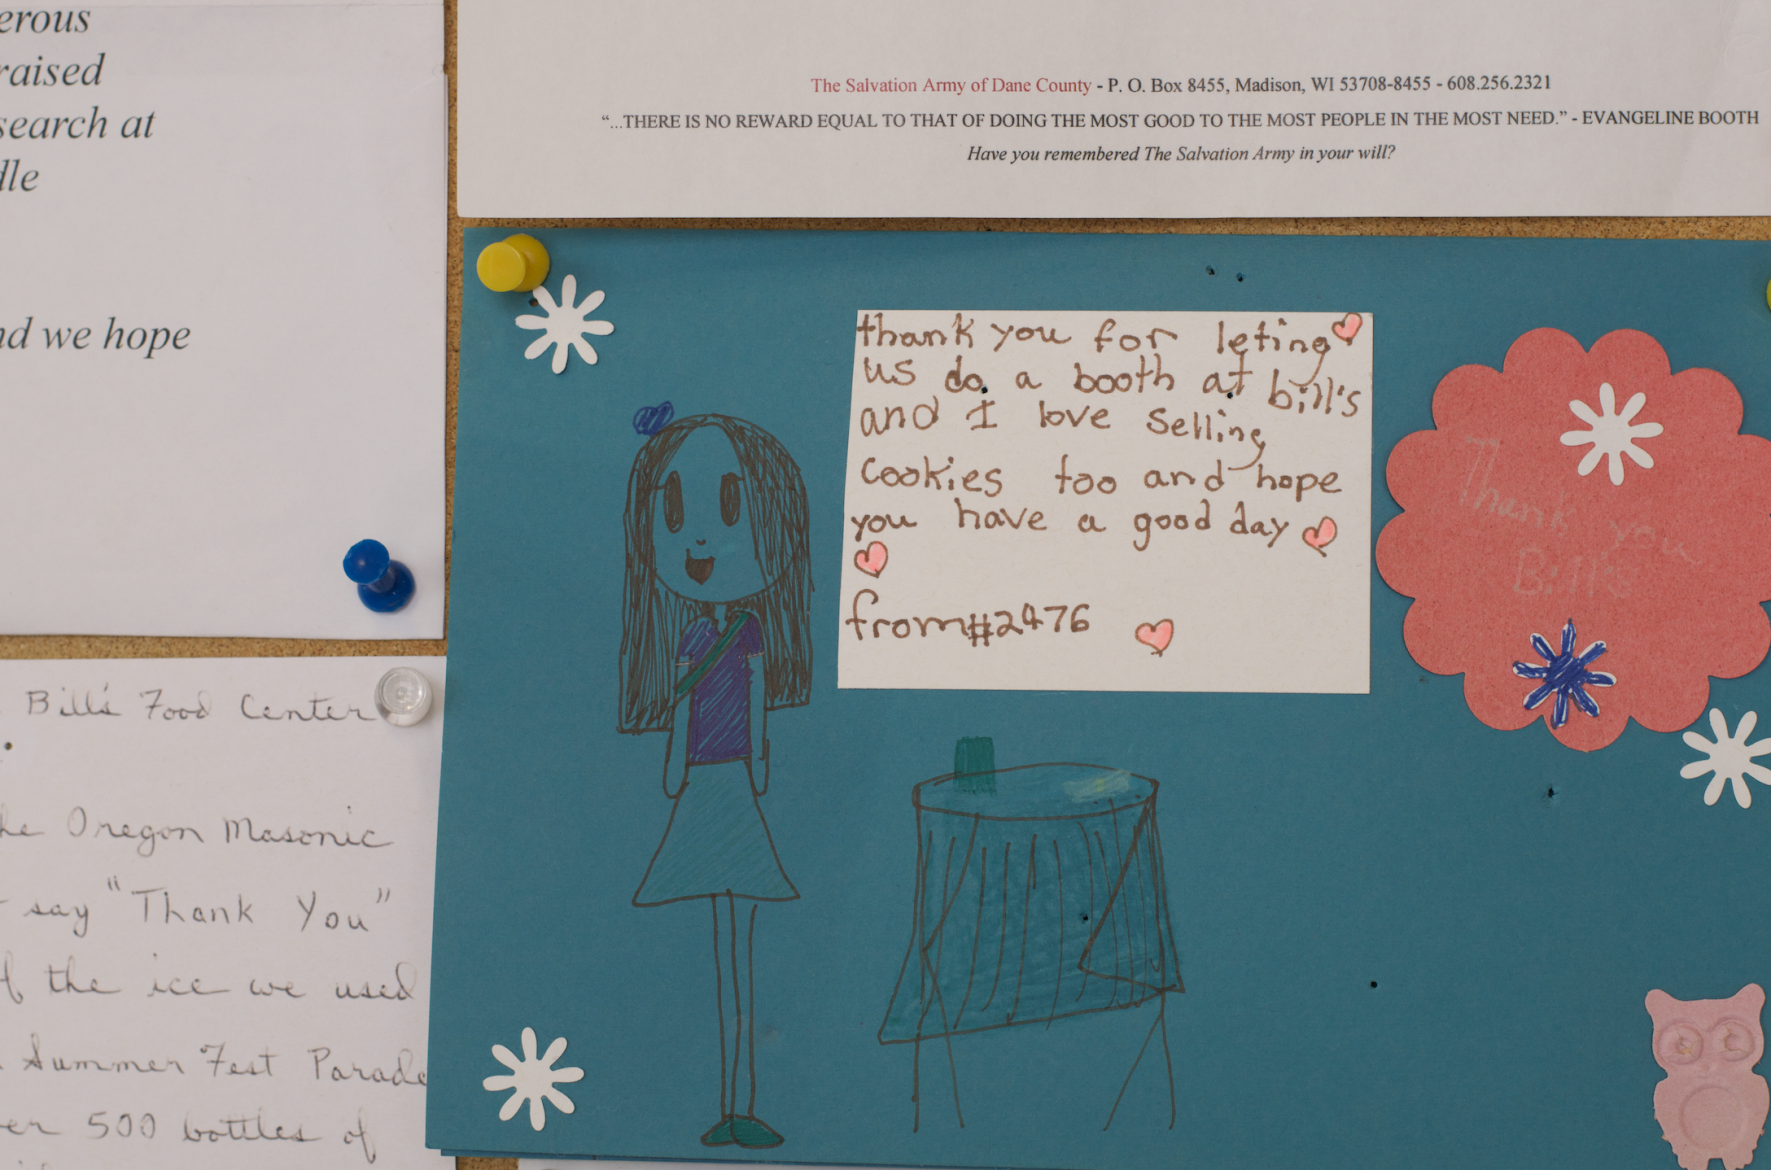 raised
at
we hope
The Salvation Army of Dane County - P. O. Box 8455, Madison, WI 53708-8455 - 608.256.2321
“...THERE IS NO REWARD EQUAL TO THAT OF DOING THE MOST GOOD TO THE MOST PEOPLE IN THE MOST NEED.” - EVANGELINE BOOTH
Have you remembered The Salvation Army in your will?
thank you for leting
us do a booth at bill's
and I love selling
cookies too and hope
you have a good day
from #2476
Thank you
Bill's
Bill's Food Center
Oregon Masonic
say "Thank You"
the ice we used
Summer Fest Parade
500 bottles of